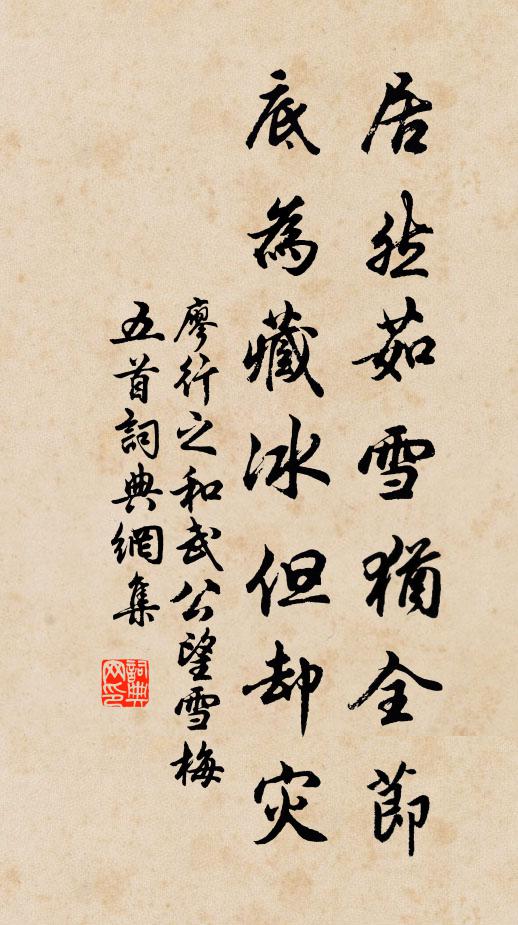 居然茹雪猶全節
底為藏冰但却灾
廖行之和武公望雪梅
五首詞典網集
詞典网印